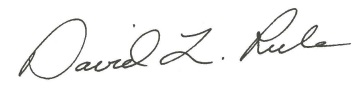 David L. Rula